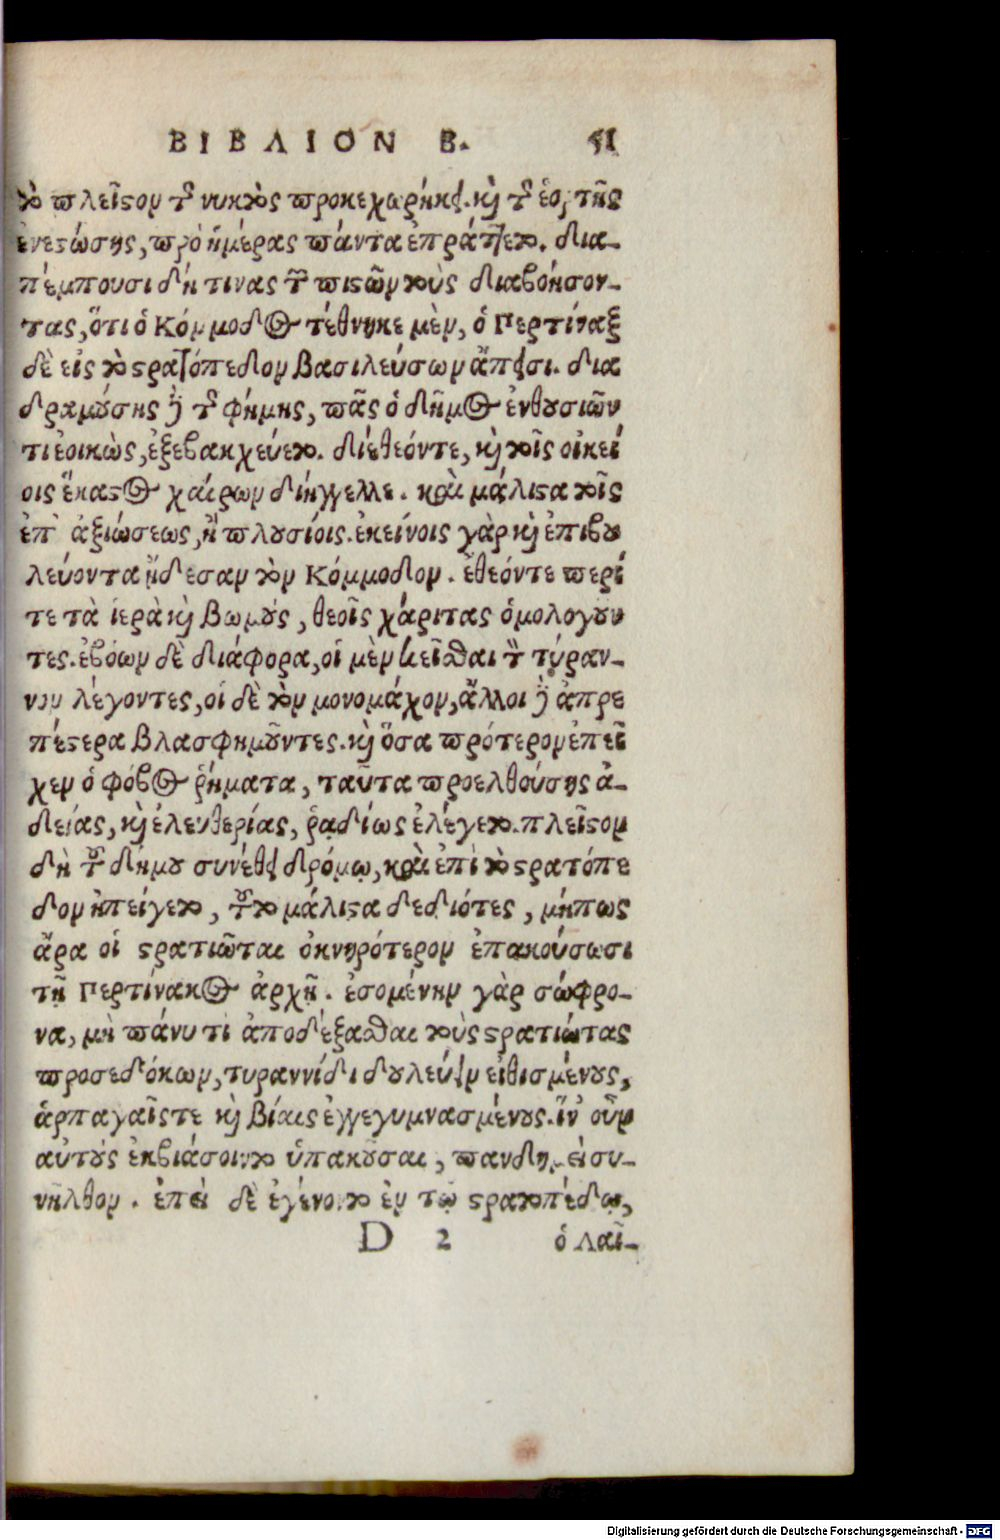 ΒΙΒΛΙΟΝ Β. 51
τὸ πλεῖστον τῆς νυκτὸς προκεχωρήκει. καὶ τῆς ἑορτῆς
ἐνεστώσης, πρὸ ἡμέρας πάντα ἐπράττετο. δια-
πέμπουσι δή τινας τῶν πιστῶν τοὺς διαβοήσον-
τας, ὅτι ὁ Κόμμοδος τέθνηκε μὲν, ὁ Περτίναξ
δὲ εἰς τὸ στρατόπεδον βασιλεύσων ἄπεισι. δια
δραμούσης δὲ τῆς φήμης, πᾶς ὁ δῆμος ἐνθουσιῶν
τι ἐοικὼς, ἐξεβακχεύετο. διέθεόν τε, καὶ τοῖς οἰκεί
οις ἕκαστος χαίρων διήγγελλε. καὶ μάλιστα τοῖς
ἐπ' ἀξιώσεως, ἢ πλουσίοις. ἐκείνοις γὰρ καὶ ἐπιβου
λεύοντα ᾔδεσαν τὸν Κόμμοδον. ἔθεόν τε περί
τε τὰ ἱερὰ καὶ βωμούς, θεοῖς χάριτας ὁμολογοῦν
τες. ἐβόων δὲ διάφορα, οἱ μὲν κεῖσθαι τὸν τύραν-
νον λέγοντες, οἱ δὲ τὸν μονομάχον, ἄλλοι δὲ ἀπρε
πέστερα βλασφημοῦντες. καὶ ὅσα πρότερον ἐπεῖ
χεν ὁ φόβος ῥήματα, ταῦτα προελθούσης ἀ-
δείας, καὶ ἐλευθερίας, ῥᾳδίως ἐλέγετο. πλεῖστον
δὴ τοῦ δήμου συνέθει δρόμῳ, καὶ ἐπὶ τὸ στρατόπε
δον ἠπείγετο, τοῦτο μάλιστα δεδιότες, μήπως
ἄρα οἱ στρατιῶται ὀκνηρότερον ἐπακούσωσι
τῇ Περτίνακος ἀρχῇ. ἐσομένην γὰρ σώφρο-
να, μὴ πάνυ τι ἀποδέξασθαι τοὺς στρατιώτας
προσεδόκων, τυραννίδι δουλεύειν εἰθισμένους,
ἁρπαγαῖς τε καὶ βίαις ἐγγεγυμνασμένους. ἵν' οὖν
αὐτοὺς ἐκβιάσοιντο ὑπακοῦσαι, πανδημεὶ συ-
νῆλθον. ἐπεὶ δὲ ἐγένοντο ἐν τῷ στρατοπέδῳ,
D 2 ὁ Λαῖ-
Digitalisierung gefördert durch die Deutsche Forschungsgemeinschaft - DFG